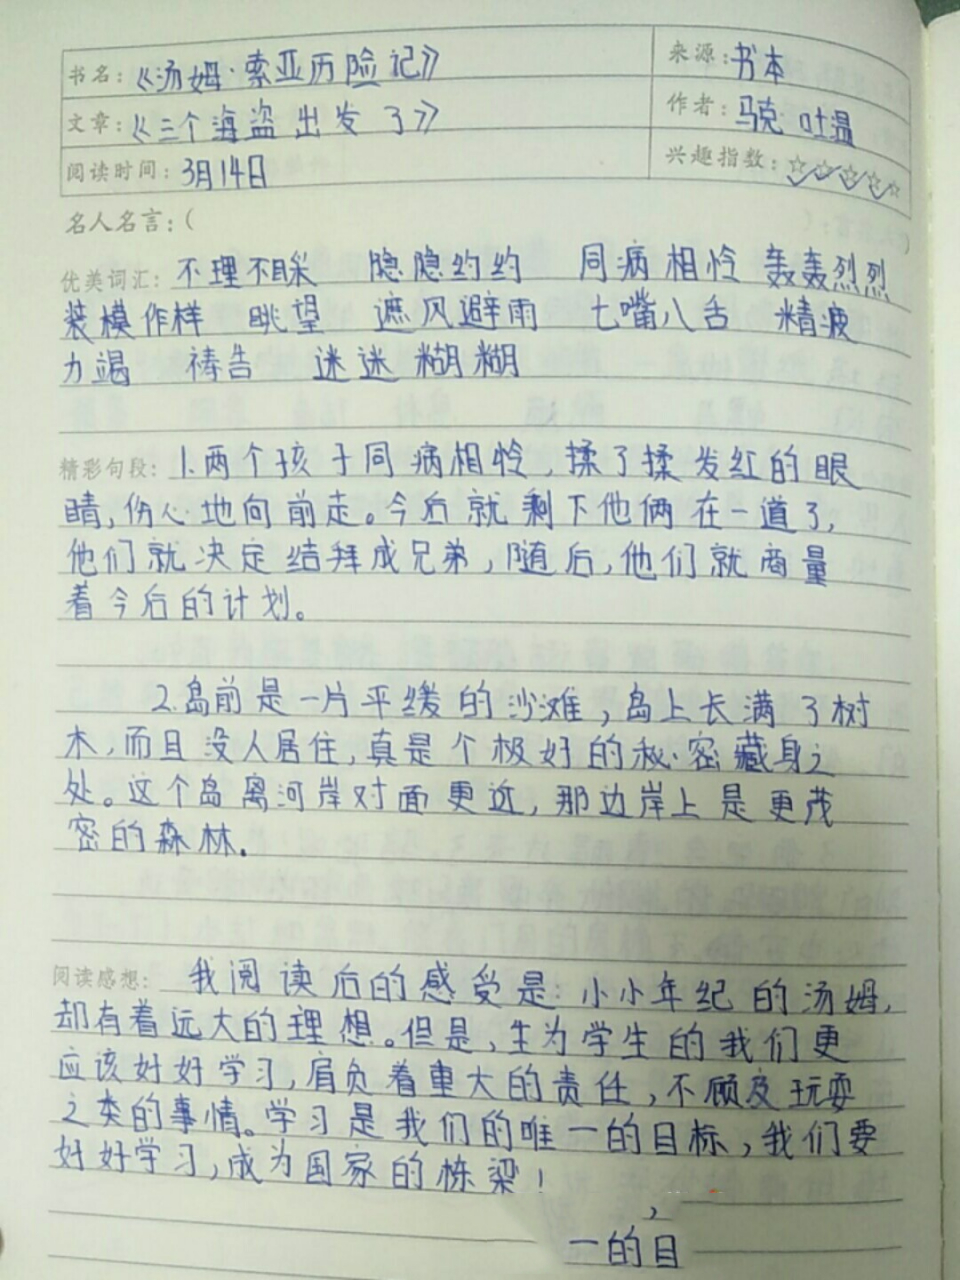 书名：《汤姆·索亚历险记》
来源：书本
文章：《三个海盗出发了》
作者：马克 吐温
阅读时间：3月14日
兴趣指数：☆☆☆☆☆
名人名言：（
优美词汇：不理不睬 隐隐约约 同病相怜 轰轰烈烈
装模作样 眺望 遮风避雨 七嘴八舌 精疲
力竭 祷告 迷迷糊糊
精彩句段：1.两个孩子同病相怜，揉了揉发红的眼
睛，伤心地向前走。今后就剩下他俩在一道了，
他们就决定结拜成兄弟，随后，他们就商量
着今后的计划。
2.岛前是一片平缓的沙滩，岛上长满了树
木，而且没人居住，真是个极好的秘密藏身之
处。这个岛离河岸对面更近，那边岸上是更茂
密的森林.
阅读感想：我阅读后的感受是：小小年纪的汤姆，
却有着远大的理想。但是，生为学生的我们更
应该好好学习，肩负着重大的责任，不顾及玩耍
之类的事情。学习是我们的唯一的目标，我们要
好好学习，成为国家的栋梁！
，
一的目